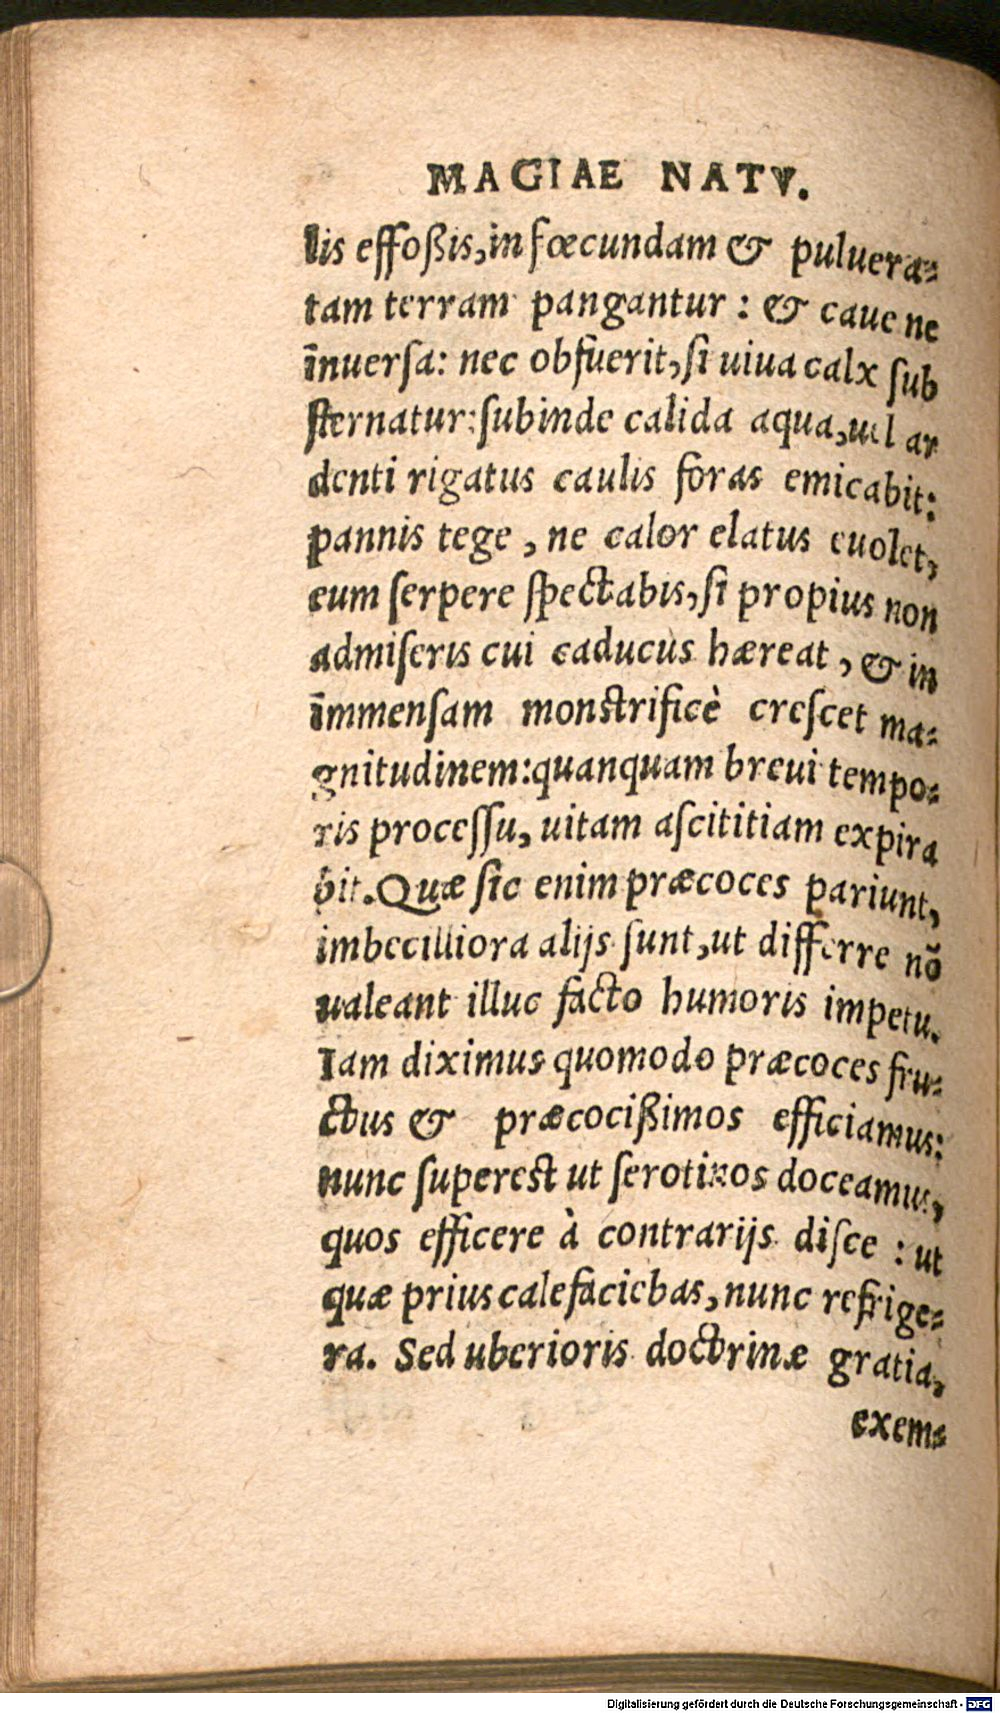 MAGIAE NATV.
lis effoßis, in fœcundam & puluera-
tam terram pangantur : & caue ne
inuersa: nec obfuerit, si uiua calx sub
sternatur: subinde calida aqua, uel ar
denti rigatus caulis foras emicabit:
pannis tege , ne calor elatus euolet,
eum serpere spectabis, si propius non
admiseris cui caducus hæreat , & in
immensam monstrificè crescet ma-
gnitudinem: quanquam breui tempo-
ris processu, uitam ascititiam expira
bit. Quæ sic enim præcoces pariunt,
imbecilliora alijs sunt, ut differre nō
ualeant illuc facto humoris impetu.
Iam diximus quomodo præcoces fru-
ctus & præcocißimos efficiamus:
nunc superest ut serotinos doceamus,
quos efficere à contrarijs disce : ut
quæ prius calefaciebas, nunc refrige-
ra. Sed uberioris doctrinæ gratia,
exem-
Digitalisierung gefördert durch die Deutsche Forschungsgemeinschaft - DFG